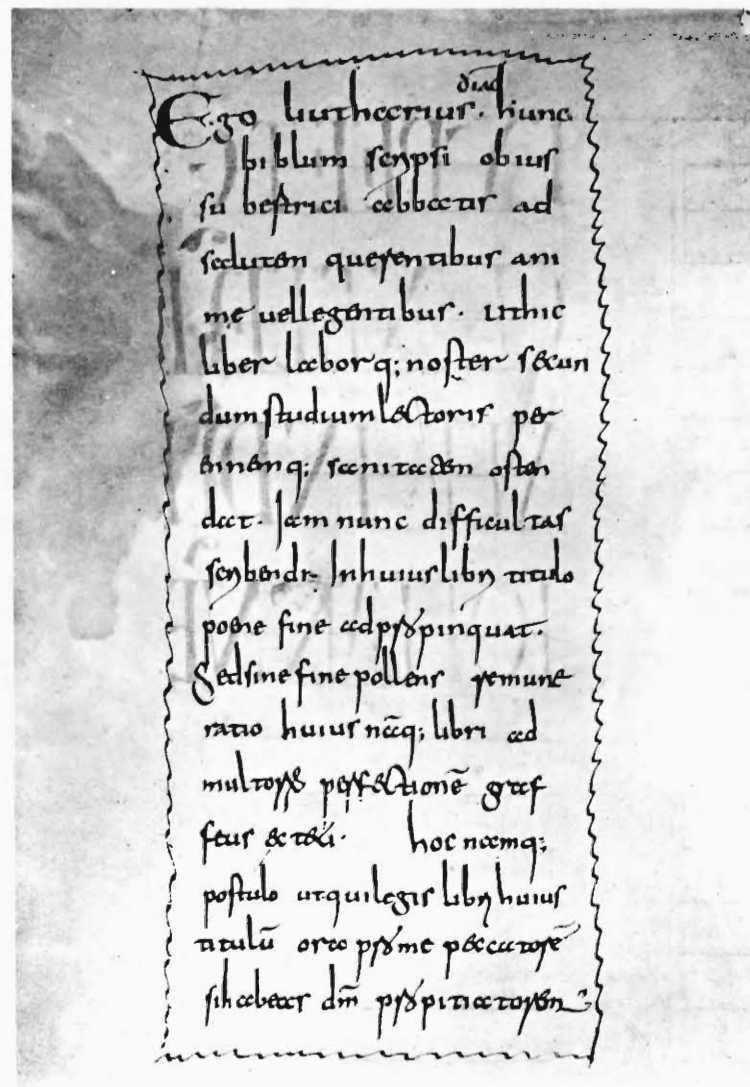 Ego liutharius diac̄ · hunc
biblum scripsi obius
su bestrici abbatis ad
salutem querentibus ani
me vellegentibus · uthic
liber laborq; noster secun
dum studium lectoris per
ennemq; sanitatem osten
dat · Iam nunc difficultas
scribendi Inhuius libri titulo
poene fine adpropinquat ·
Sedsine fine pollens remune
ratio huius nāq; libri ad
multorū perfectionē
hoc namq;
postulo utquilegis libri huius
titulū ora prome peccatorē
sihabeas dm̄ propitiatorem